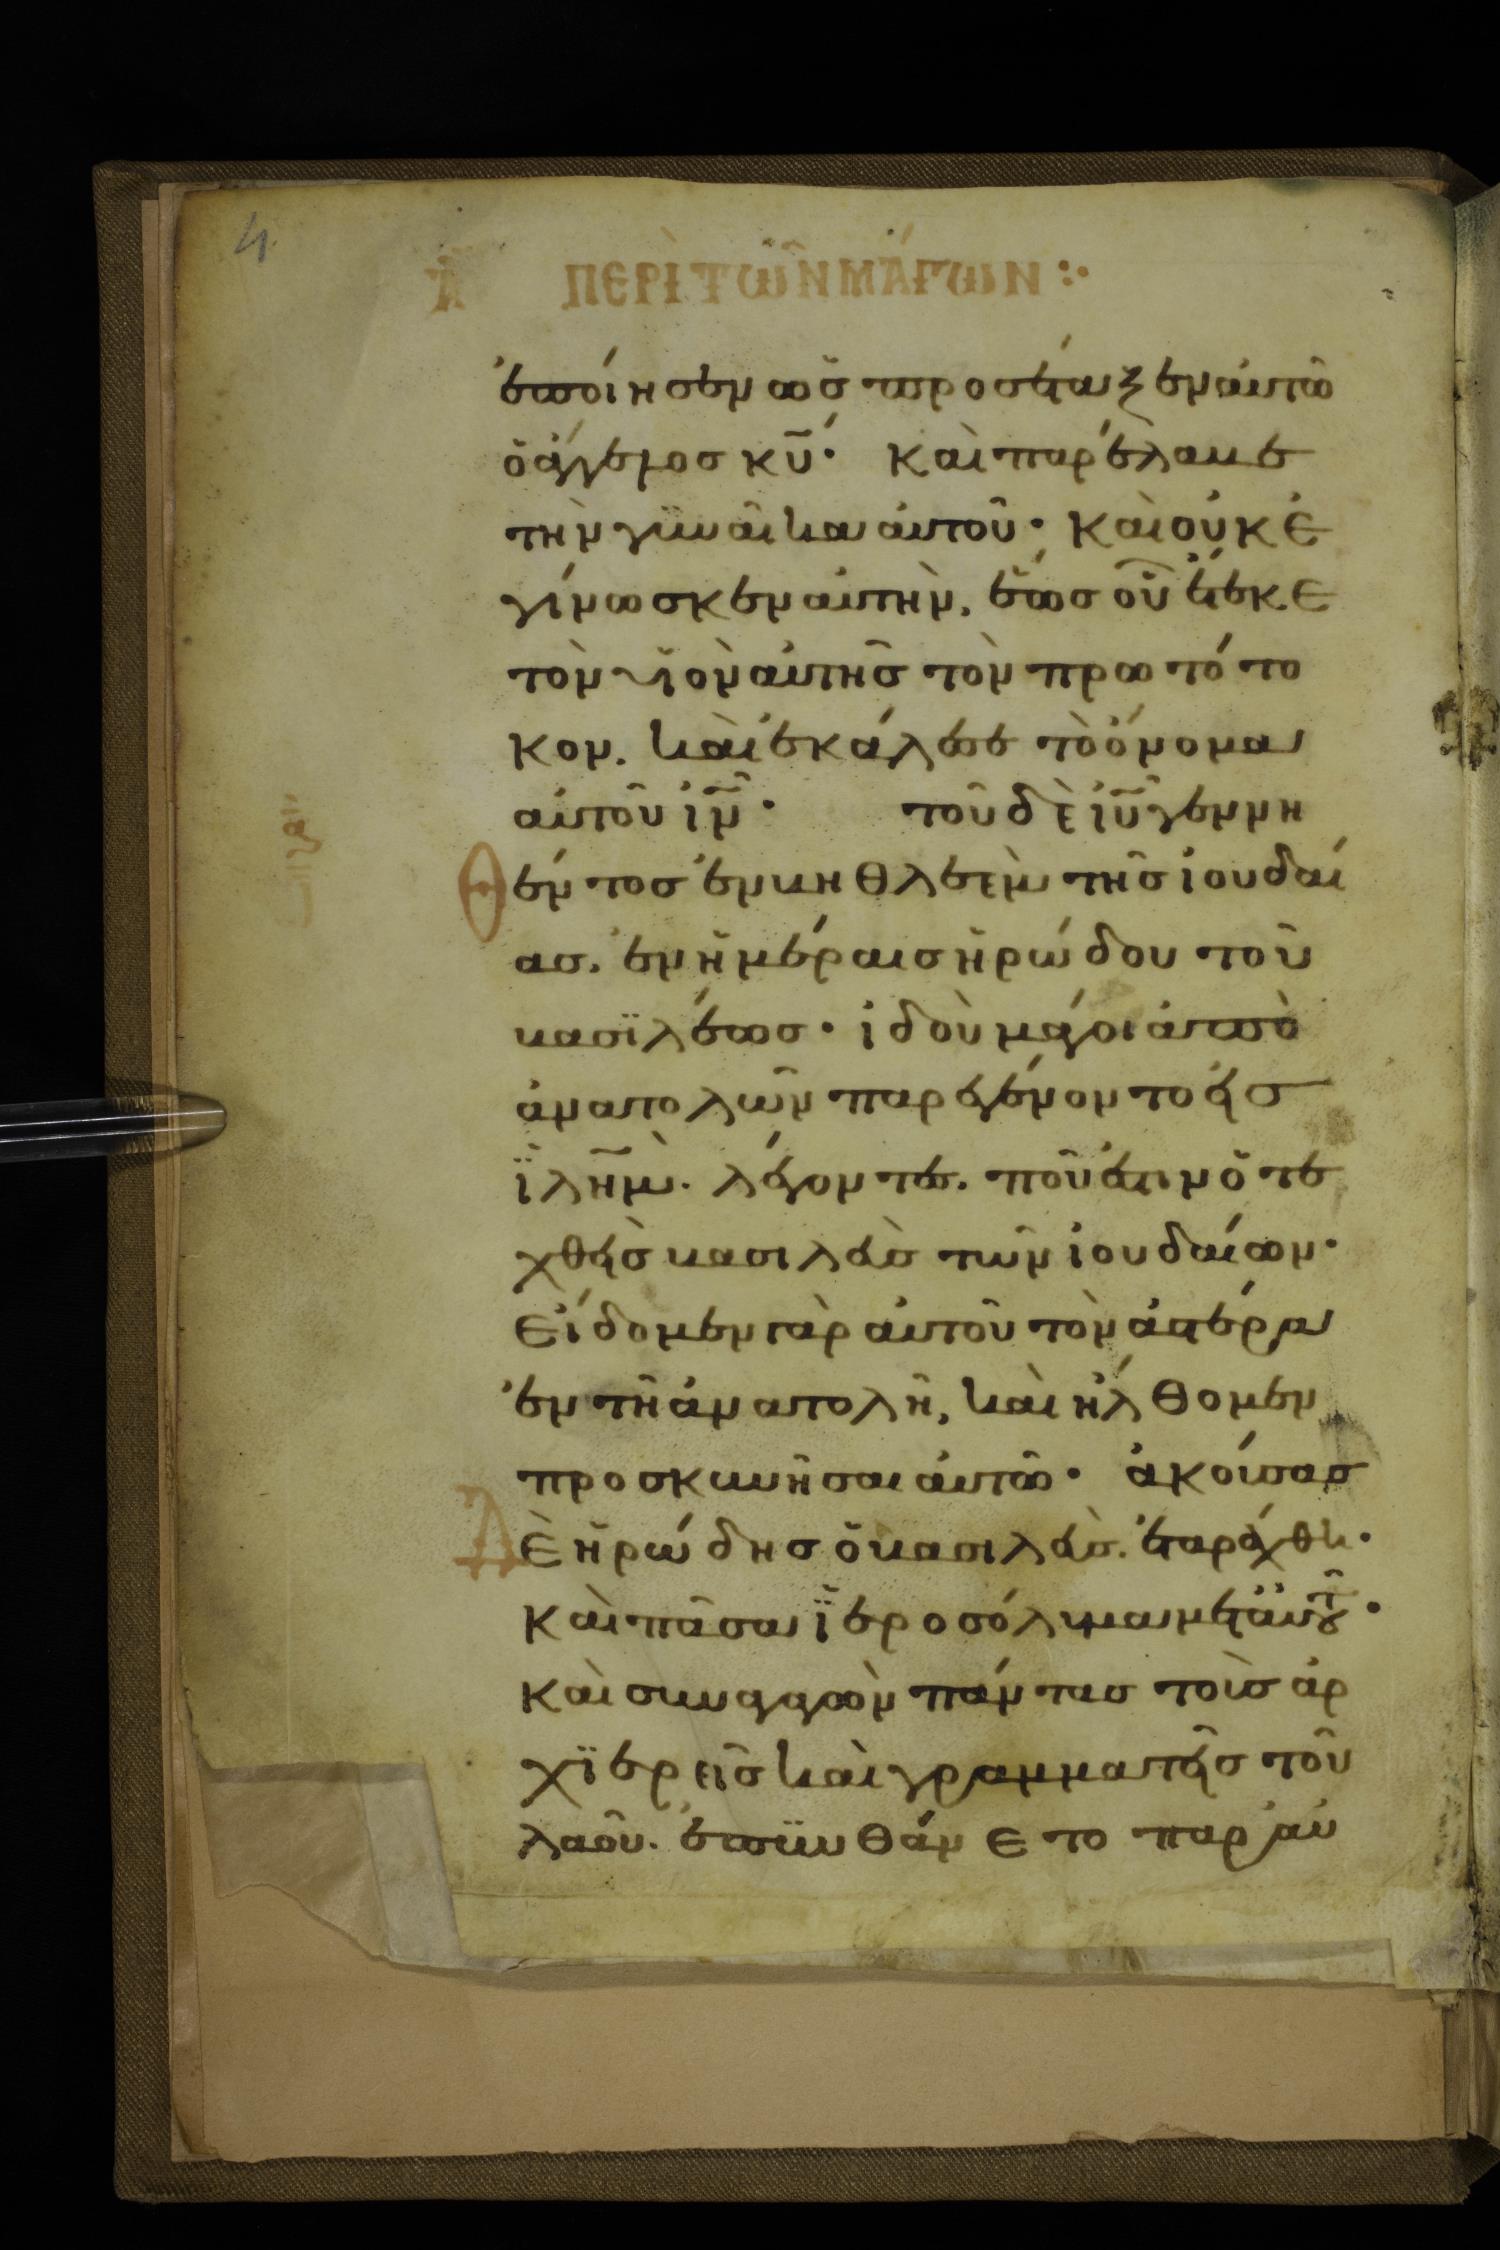 4
Α ΠΕΡῚ ΤΩ͂Ν ΜΆΓΩΝ :·
ἐποίησεν ὡς προσέταξεν αὐτῶ
ὁ ἄγγελος κυ̅· Καὶ παρέλαβε
τὴν γυναῖκα αὐτοῦ· Καὶ οὐκ ἐ
γίνωσκεν αὐτὴν, ἕως οὗ ἔτεκε
τὸν υἱὸν αὐτῆς τὸν πρωτότο
κον. καὶ ἐκάλεσε τὸ ὄνομα
αὐτοῦ ι̅ν̅· τοῦ δὲ ι̅υ̅ γεννη
θέντος ἐν βηθλεὲμ τῆς ἰουδαί
ας. ἐν ἡμέραις ἡρώδου τοῦ
βασιλέως· ἰδοὺ μάγοι ἀπὸ
ἀνατολῶν παρεγένοντο εἰς
ϊλη̅μ. λέγοντες. ποῦ ἐστιν ὁ τε
χθεὶς βασιλεὺς τῶν ἰουδαίων·
Εἴδομεν γὰρ αὐτοῦ τὸν ἀστέρα
ἐν τῆ ἀνατολῆ, καὶ ἤλθομεν
προσκυνῆσαι αὐτῶ· ἀκούσας
Δὲ ἡρώδης ὁ βασιλεὺς. ἐταράχθη·
Καὶ πᾶσα ϊεροσόλυμα μετ' αὐτοῦ·
Καὶ συναγαγὼν πάντας τοὺς ἀρ
χϊερεῖς καὶ γραμματεῖς τοῦ
λαοῦ. ἐπυνθάνετο παρ' αὐ